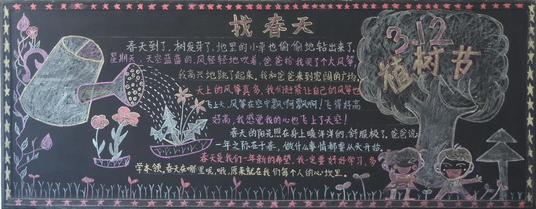 找春天
春天到了，树发芽了，地里的小草也偷偷地钻出来了。
星期天，天空蓝蓝的，风轻轻地吹着，爸爸给我买了个大风筝，
我高兴地跳了起来，我和爸爸来到宽阔的广场，
天上的风筝真多，我们赶紧让自己的风筝也
飞上天，风筝在空中飘啊飘啊！飞得好高
好高，我感觉我的心也飞上了天空！
春天的阳光照在身上暖洋洋的，舒服极了，爸爸说
一年之际在于春，做什么事情都要从春天开始，
春天是我们一年新的希望，我一定要好好学习，多
学本领，春天在哪里呢，哦，原来就在我们每个人的心坎里。
3.12
植树节